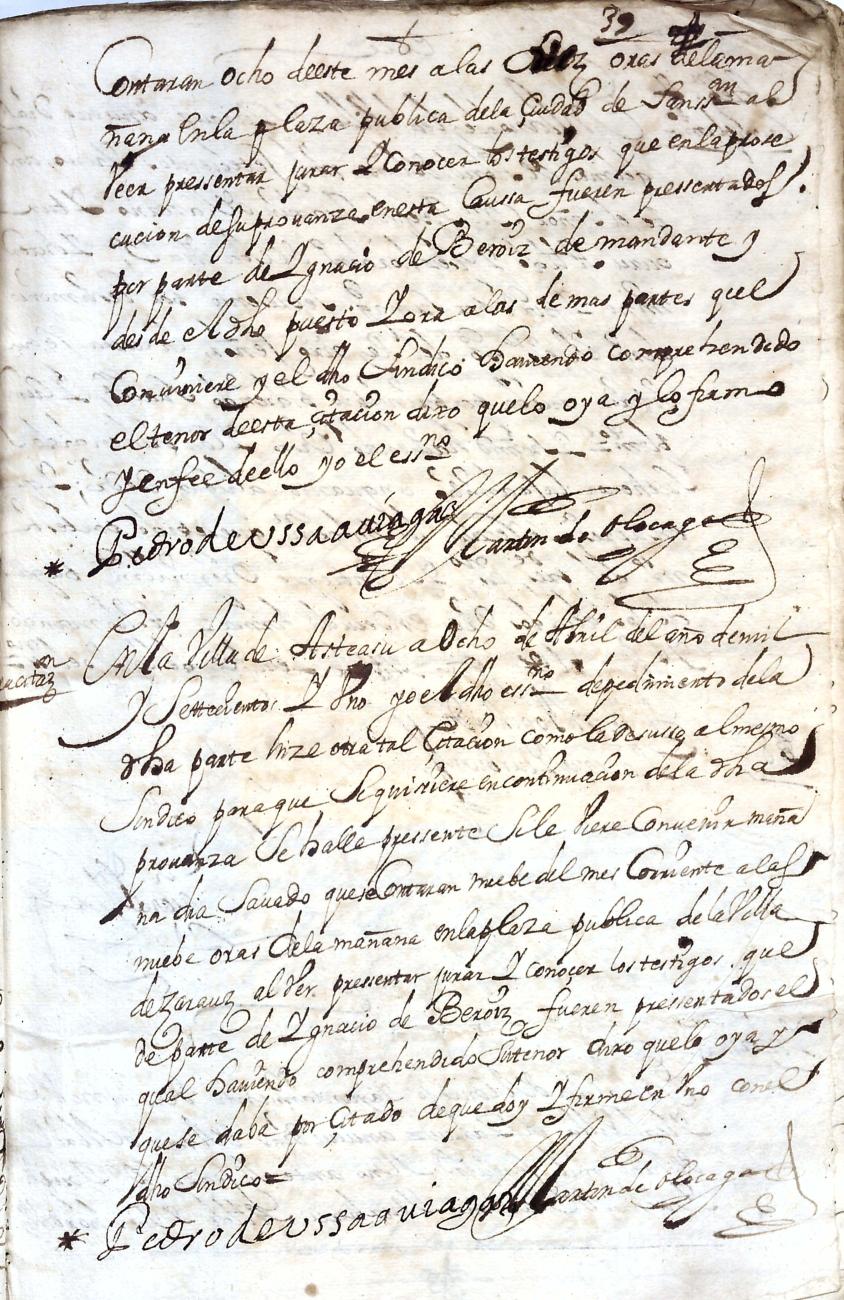 39
Contaran ocho deeste mes a las Diez oras dela ma-
ñana En la plaza publica dela Çiudad de Sanss.an al
Veer pressentar jurar Y conocer los testigos que en la prose
cucion de su prouanza en esta Caussa fueren pressentados
por parte de Ygnacio de Beroiz demandante y
desde A dho puesto Y ora a las demas partes quel
Conuiniere y el dho Sindico hauiendo comprehendido
el tenor deesta çitacion dixo quelo oya y lo firmo
Y enfee deello yo el ess.no
Pedro de ussaauiaga Martin de Olocaga
En la Villa de Asteasu a Ocho de Abril del año demil
Y Settecientos Y Vno yo el dho ess.no depedimiento dela
dha parte hize otra tal Çitacion como la desusso al mesmo
Sindico para que Si quisiere en continuacion dela dha
prouanza Se halle pressente Si le Viere Conuenir maña
na dia Sauado que se Contaran nuebe del mes Corriente a las
nuebe oras dela mañana en la plaza publica de la Villa
de Zarauz al Ver pressentar jurar Y conocer los testigos que
de parte de Ygnacio de Beroiz fueren pressentados el
qual hauiendo comprehendido Su tenor dixo quelo oya y
que se daba por Çitado de que doy Y firme en Vno con el
dho Sindico=
Pedro de ussaauiaga Martin de Olocaga